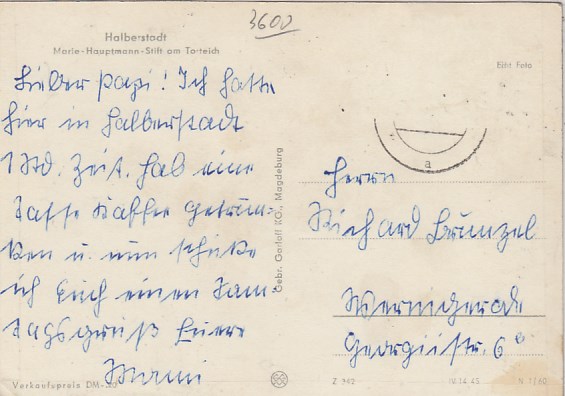 3600
Halberstadt
Marie-Hauptmann-Stift am Torteich
Echt Foto
Lieber Papi! Ich hatte
hier in Halberstadt
1 Std. Zeit. Hab eine
Tasse Kaffee getrun-
ken u. nun schicke
ich Euch einen Sonn-
tagsgruß Eure
Mami
Gebr. Garloff KG., Magdeburg
a
Herrn
Richard Brünzel
Wernigerode
Georgiistr. 6
Verkaufspreis DM
Z 942
IV.14.45